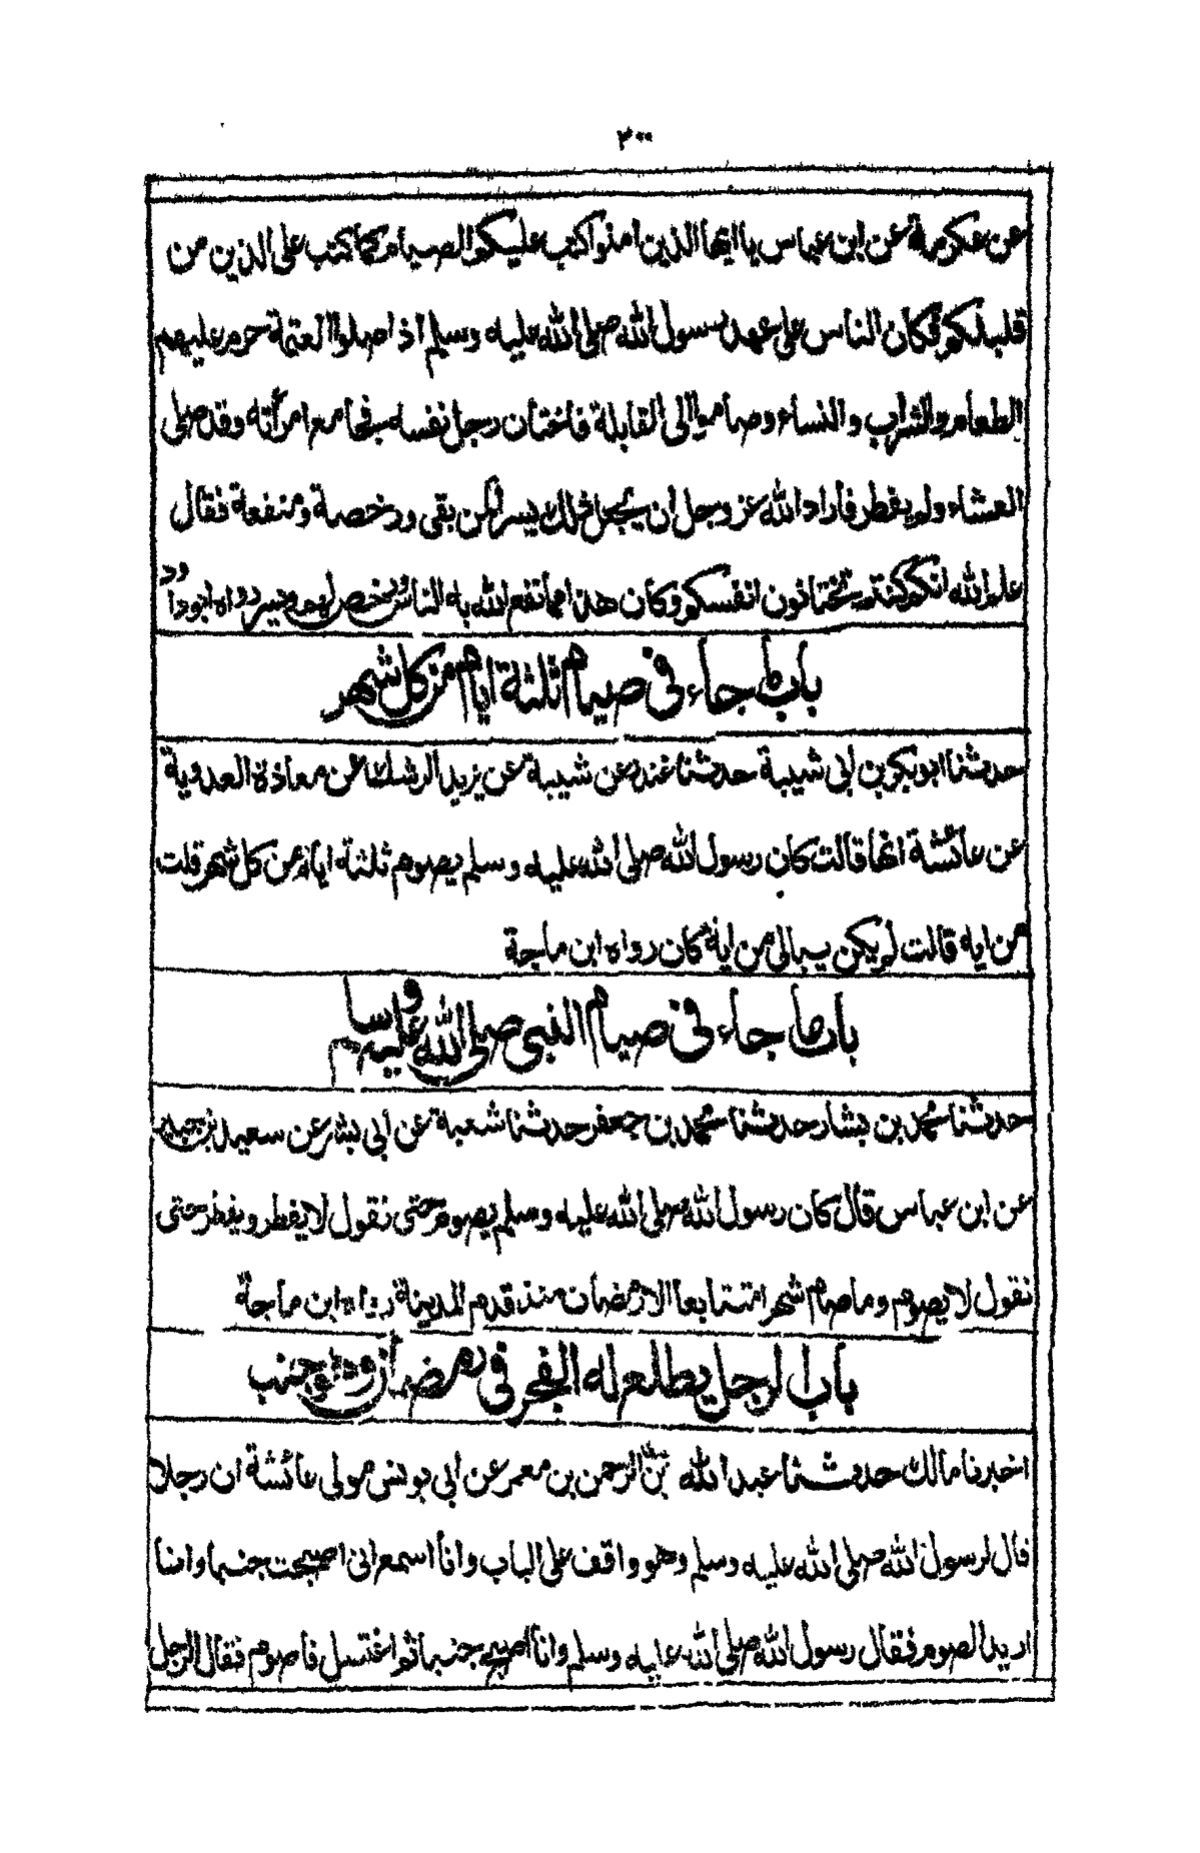 ٢٠٠
عن عكرمة عن ابن عباس يا ايها الذين امنوا كتب عليكم الصيام كما كتب على الذين من
قبلكم فكان الناس على عهد رسول الله صلى الله عليه وسلم اذا صلوا العتمة حرم عليهم
الطعام والشراب والنساء وصاموا الى القابلة فاختان رجل نفسه فجامع امرأته وقد صلى
العشاء ولم يفطر فأراد الله عز وجل ان يجعل ذلك يسرا لمن بقى ورخصة ومنفعة فقال
علم الله انكم كنتم تختانون انفسكم وكان هذا مما نفع الله به الناس ورخص لهم ويسر رواه ابوداود
باب ما جاء في صيام ثلثة ايام من كل شهر
حدثنا ابو بكر بن ابى شيبة حدثنا غندر عن شيبة عن يزيد الرشك عن معاذة العدوية
عن عائشة انها قالت كان رسول الله صلى الله عليه وسلم يصوم ثلثة ايام من كل شهر قلت
من ايه قالت لم يكن يبالى من ايه كان رواه ابن ماجة
باب ما جاء في صيام النبى صلى الله عليه وسلم
حدثنا محمد بن بشار حدثنا محمد بن جعفر حدثنا شعبة عن أبى بشر عن سعيد بن جبير
عن ابن عباس قال كان رسول الله صلى الله عليه وسلم يصوم حتى نقول لا يفطر ويفطر حتى
نقول لا يصوم وما صام شهرا متتابعا الا رمضان منذ قدم المدينة رواه ابن ماجة
باب الرجل يطلع له الفجر فى رمضان وهو جنب
اخبرنا مالك حدثنا عبد الله بن عبد الرحمن بن معمر عن ابى يونس مولى عائشة ان رجلا
قال لرسول الله صلى الله عليه وسلم وهو واقف على الباب وانا اسمع انى اصبحت جنبا وانا
اريد الصوم فقال رسول الله صلى الله عليه وسلم وانا اصبح جنبا ثم اغتسل فأصوم فقال الرجل